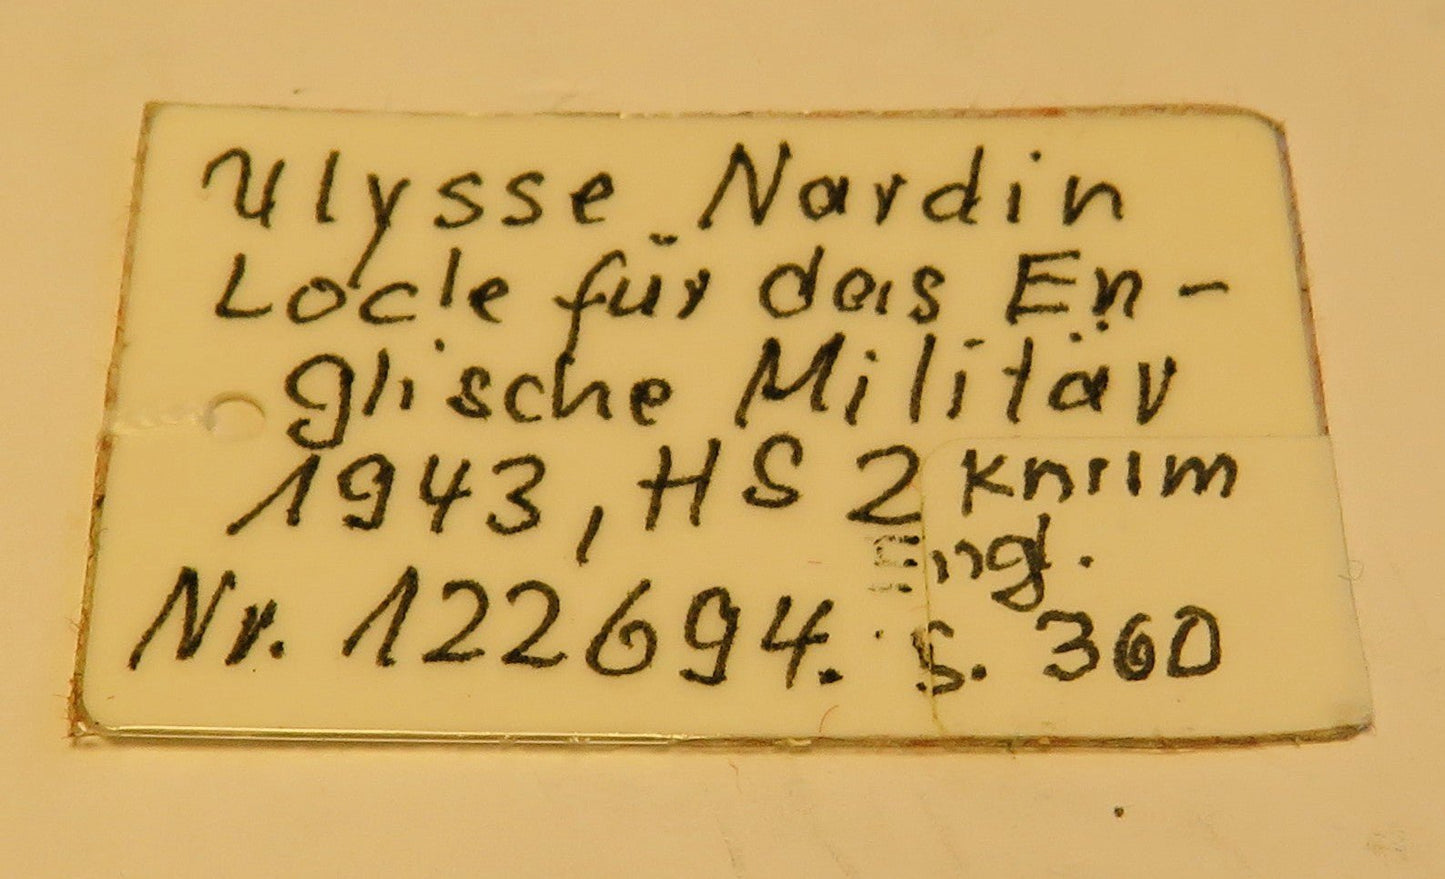 Ulysse Nardin
Locle für das En-
glische Militär
1943, HS 2
Nr. 122694. S. 360